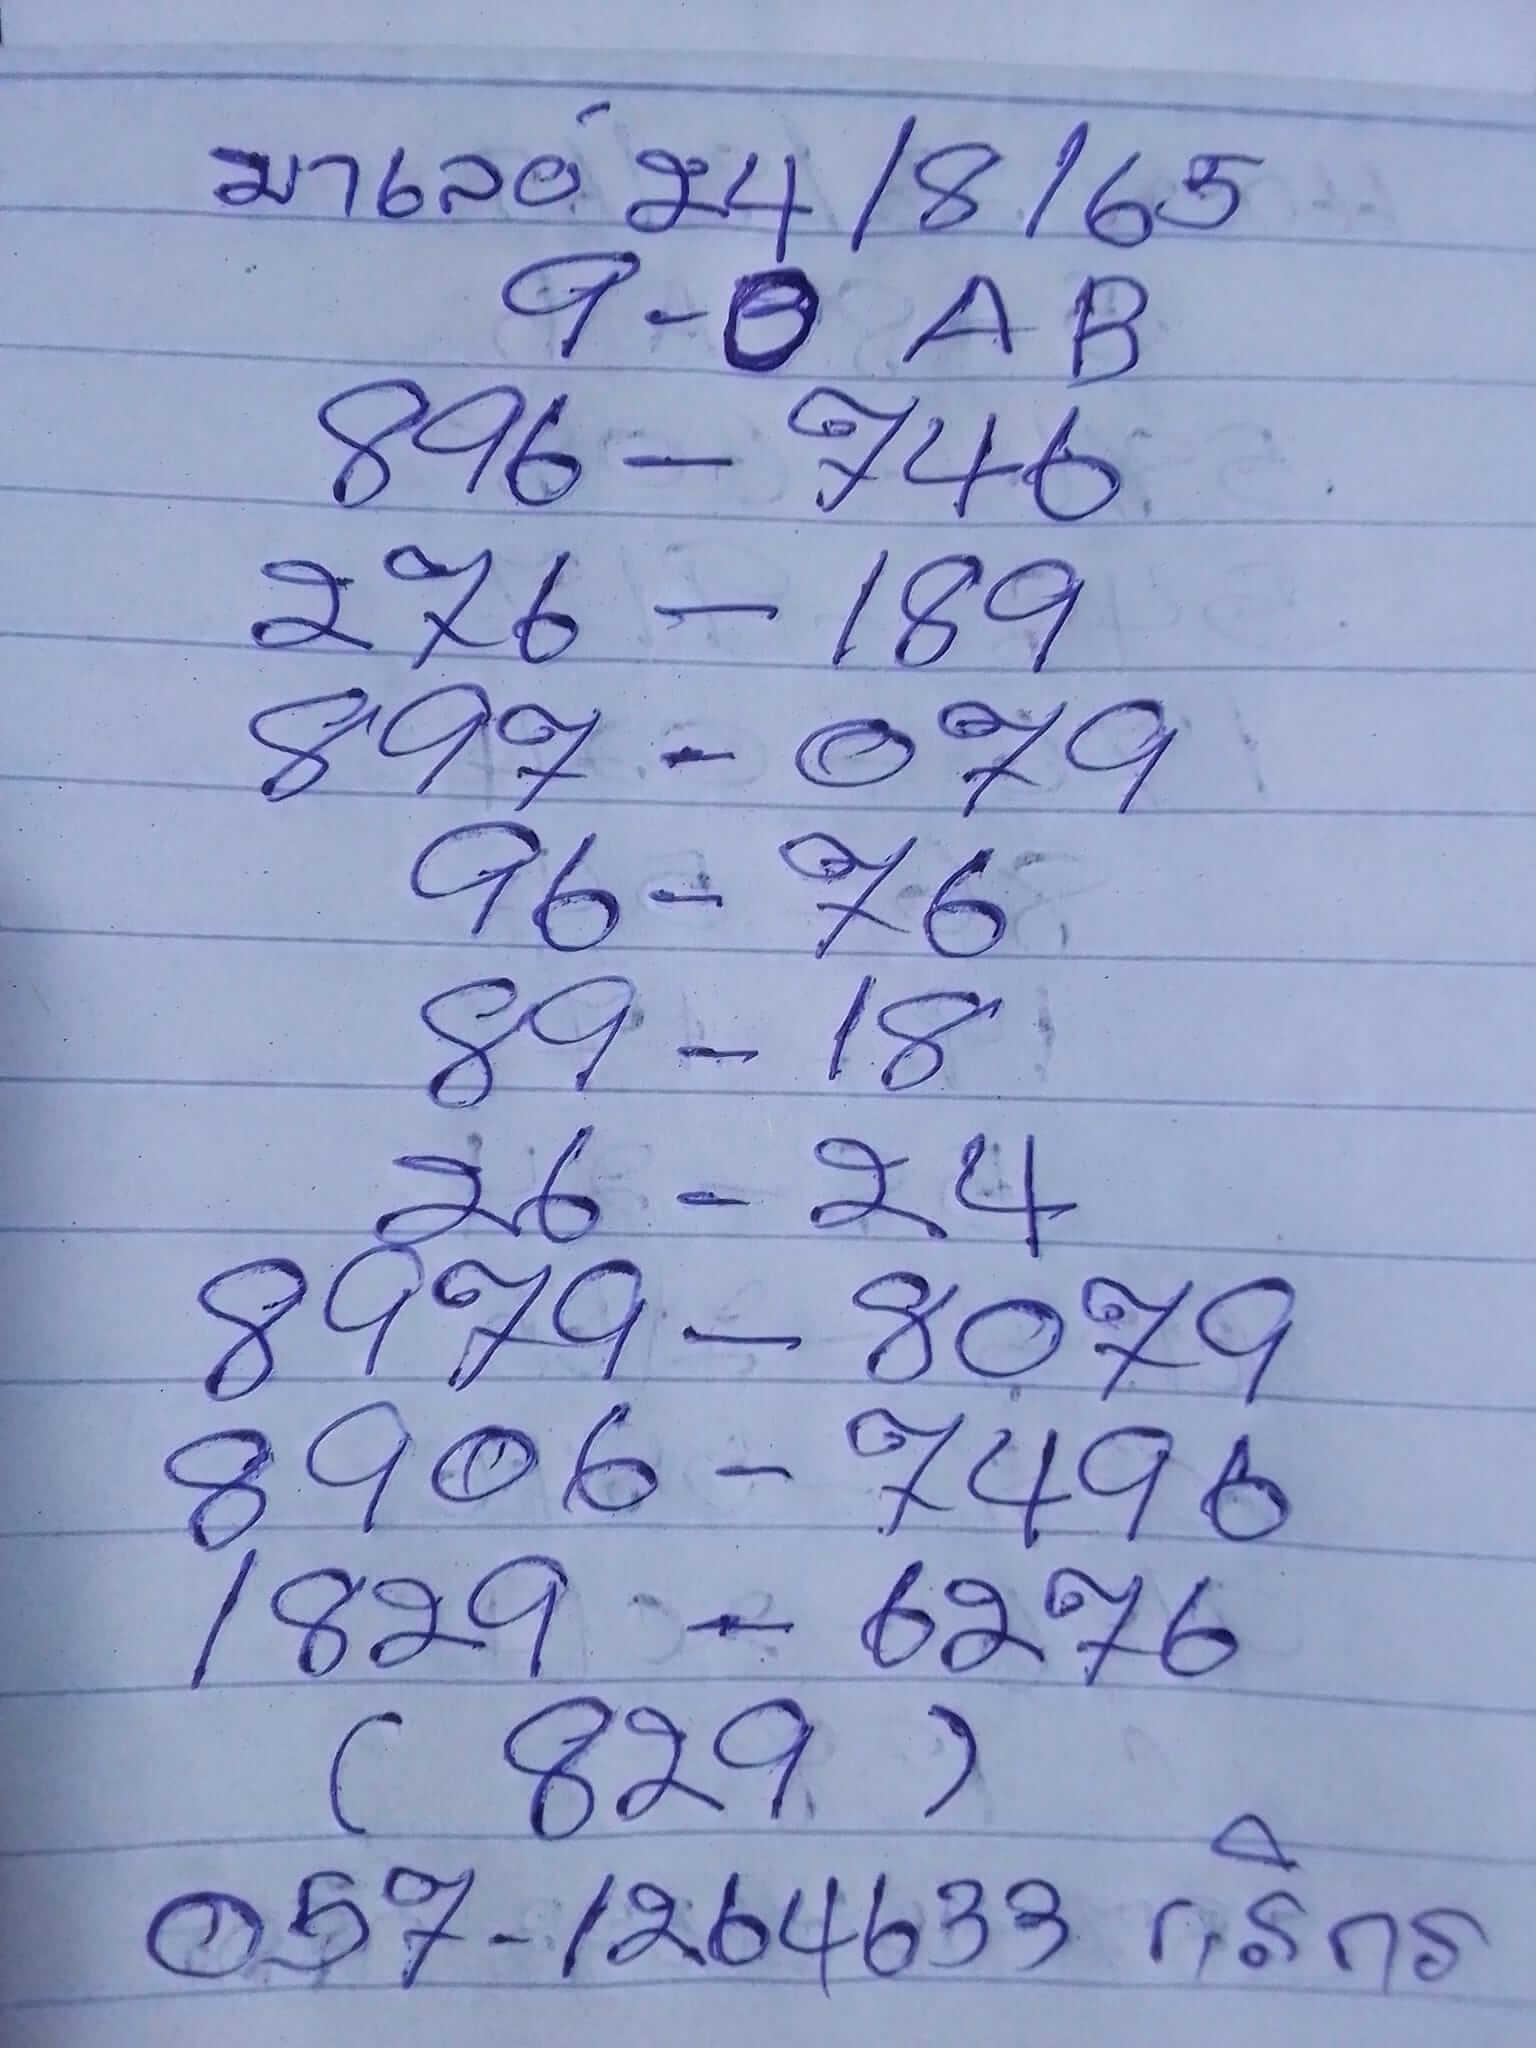 มาเลย์ 24/8/65
9-0 AB
896-746
276-189
897-079
96-76
89-18
26-24
8979-8079
8906-7496
1829-6276
(829)
057-1264633